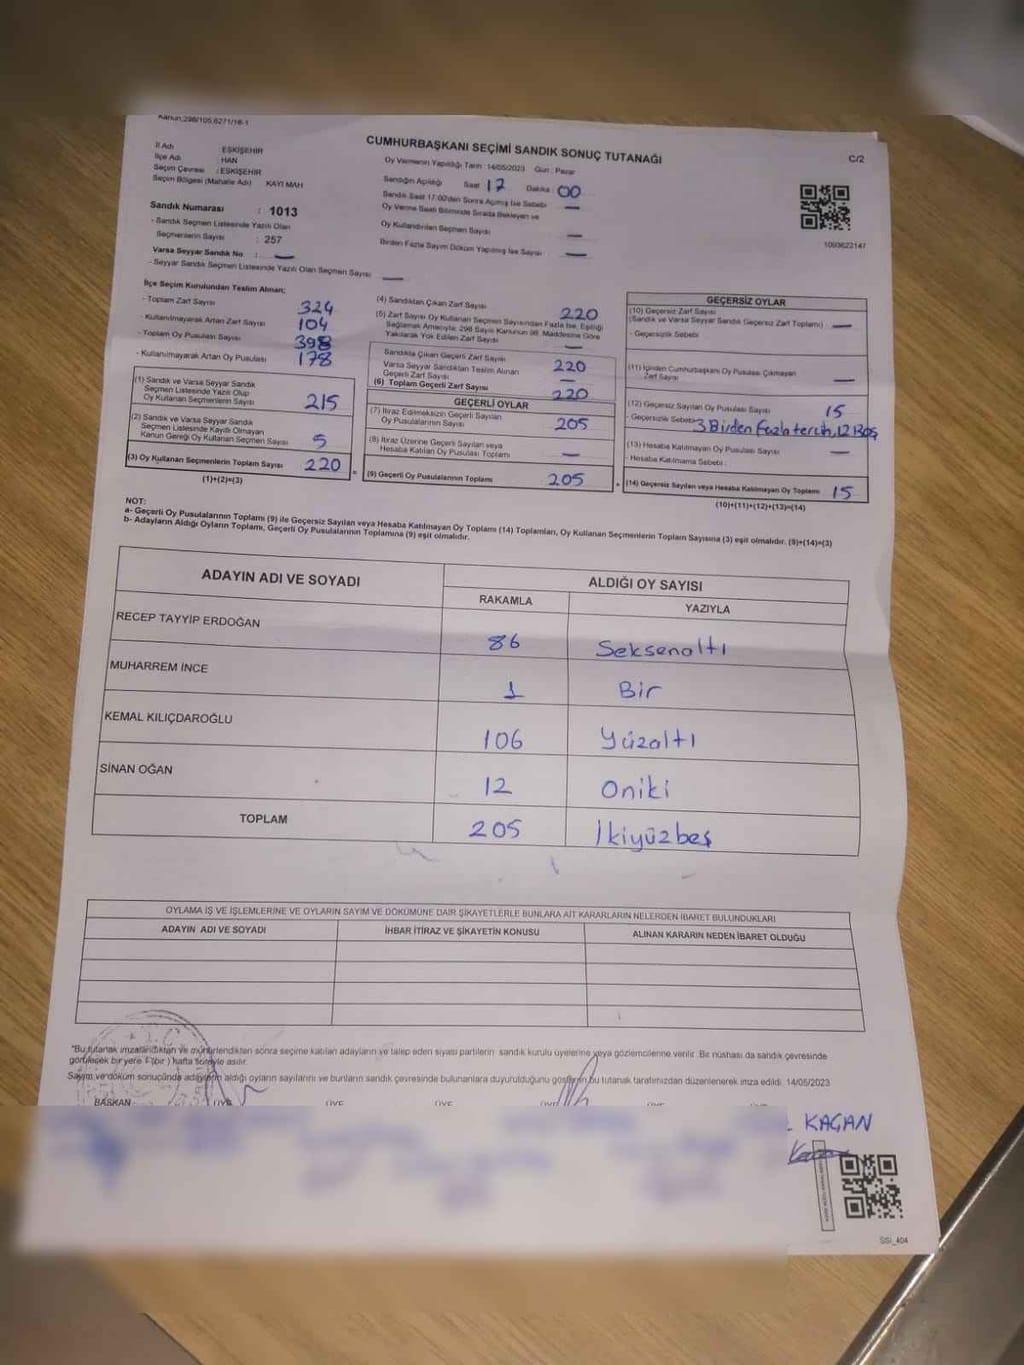 Kanun;298/105,6271/18-1
CUMHURBAŞKANI SEÇİMİ SANDIK SONUÇ TUTANAĞI
C/2
İl Adı : ESKİŞEHİR
İlçe Adı : HAN
Seçim Çevresi : ESKİŞEHİR
Seçim Bölgesi (Mahalle Adı) KAYI MAH
Sandık Numarası : 1013
- Sandık Seçmen Listesinde Yazılı Olan
Seçmenlerin Sayısı : 257
Varsa Seyyar Sandık No : —
- Seyyar Sandık Seçmen Listesinde Yazılı Olan Seçmen Sayısı —
Oy Vermenin Yapıldığı Tarih : 14/05/2023 Gün : Pazar
Sandığın Açıldığı Saat 17 Dakika 00
Sandık Saat 17:00'den Sonra Açılmış İse Sebebi —
Oy Verme Saati Bitiminde Sırada Bekleyen ve
Oy Kullandırılan Seçmen Sayısı —
Birden Fazla Sayım Döküm Yapılmış İse Sayısı —
1093623147
İlçe Seçim Kurulundan Teslim Alınan;
- Toplam Zarf Sayısı 324
- Kullanılmayarak Artan Zarf Sayısı 104
- Toplam Oy Pusulası Sayısı 398
- Kullanılmayarak Artan Oy Pusulası 178
(1) Sandık ve Varsa Seyyar Sandık
Seçmen Listesinde Yazılı Olup
Oy Kullanan Seçmenlerin Sayısı 215
(2) Sandık ve Varsa Seyyar Sandık
Seçmen Listesinde Kayıtlı Olmayan
Kanun Gereği Oy Kullanan Seçmen Sayısı 5
(3) Oy Kullanan Seçmenlerin Toplam Sayısı 220
(1)+(2)=(3)
(4) Sandıktan Çıkan Zarf Sayısı 220
(5) Zarf Sayısı Oy Kullanan Seçmen Sayısından Fazla İse, Eşitliği
Sağlamak Amacıyla; 298 Sayılı Kanunun 98. Maddesine Göre
Yakılarak Yok Edilen Zarf Sayısı —
Sandıkta Çıkan Geçerli Zarf Sayısı 220
Varsa Seyyar Sandıktan Teslim Alınan
Geçerli Zarf Sayısı —
(6) Toplam Geçerli Zarf Sayısı 220
GEÇERLİ OYLAR
(7) İtiraz Edilmeksizin Geçerli Sayılan
Oy Pusulalarının Sayısı 205
(8) İtiraz Üzerine Geçerli Sayılan veya
Hesaba Katılan Oy Pusulası Toplamı —
= (9) Geçerli Oy Pusulalarının Toplamı 205 +
GEÇERSİZ OYLAR
(10) Geçersiz Zarf Sayısı
(Sandık ve Varsa Seyyar Sandık Geçersiz Zarf Toplamı) —
- Geçersizlik Sebebi
(11) İçinden Cumhurbaşkanı Oy Pusulası Çıkmayan
Zarf Sayısı —
(12) Geçersiz Sayılan Oy Pusulası Sayısı 15
- Geçersizlik Sebebi 3 Birden Fazla tercih, 12 Boş
(13) Hesaba Katılmayan Oy Pusulası Sayısı —
- Hesaba Katılmama Sebebi :
(14) Geçersiz Sayılan veya Hesaba Katılmayan Oy Toplamı 15
(10)+(11)+(12)+(13)=(14)
NOT:
a- Geçerli Oy Pusulalarının Toplamı (9) ile Geçersiz Sayılan veya Hesaba Katılmayan Oy Toplamı (14) Toplamları, Oy Kullanan Seçmenlerin Toplam Sayısına (3) eşit olmalıdır. (9)+(14)=(3)
b- Adayların Aldığı Oyların Toplamı, Geçerli Oy Pusulalarının Toplamına (9) eşit olmalıdır.
ADAYIN ADI VE SOYADI ALDIĞI OY SAYISI
RAKAMLA YAZIYLA
RECEP TAYYİP ERDOĞAN 86 Seksenaltı
MUHARREM İNCE 1 Bir
KEMAL KILIÇDAROĞLU 106 Yüzaltı
SİNAN OĞAN 12 Oniki
TOPLAM 205 İkiyüzbeş
OYLAMA İŞ VE İŞLEMLERİNE VE OYLARIN SAYIM VE DÖKÜMÜNE DAİR ŞİKAYETLERLE BUNLARA AİT KARARLARIN NELERDEN İBARET BULUNDUKLARI
ADAYIN ADI VE SOYADI İHBAR İTİRAZ VE ŞİKAYETİN KONUSU ALINAN KARARIN NEDEN İBARET OLDUĞU
"Bu tutanak imzalandıktan ve mühürlendikten sonra seçime katılan adayların ve talep eden siyasi partilerin sandık kurulu üyelerine veya gözlemcilerine verilir. Bir nüshası da sandık çevresinde
görülecek bir yere 1 (bir) hafta süreyle asılır.
Sayım ve döküm sonucunda adayların aldığı oyların sayılarını ve bunların sandık çevresinde bulunanlara duyurulduğunu gösteren bu tutanak tarafımızdan düzenlenerek imza edildi. 14/05/2023
BAŞKAN ÜYE ÜYE ÜYE ÜYE ÜYE ÜYE
KAÇAN
SSİ_404